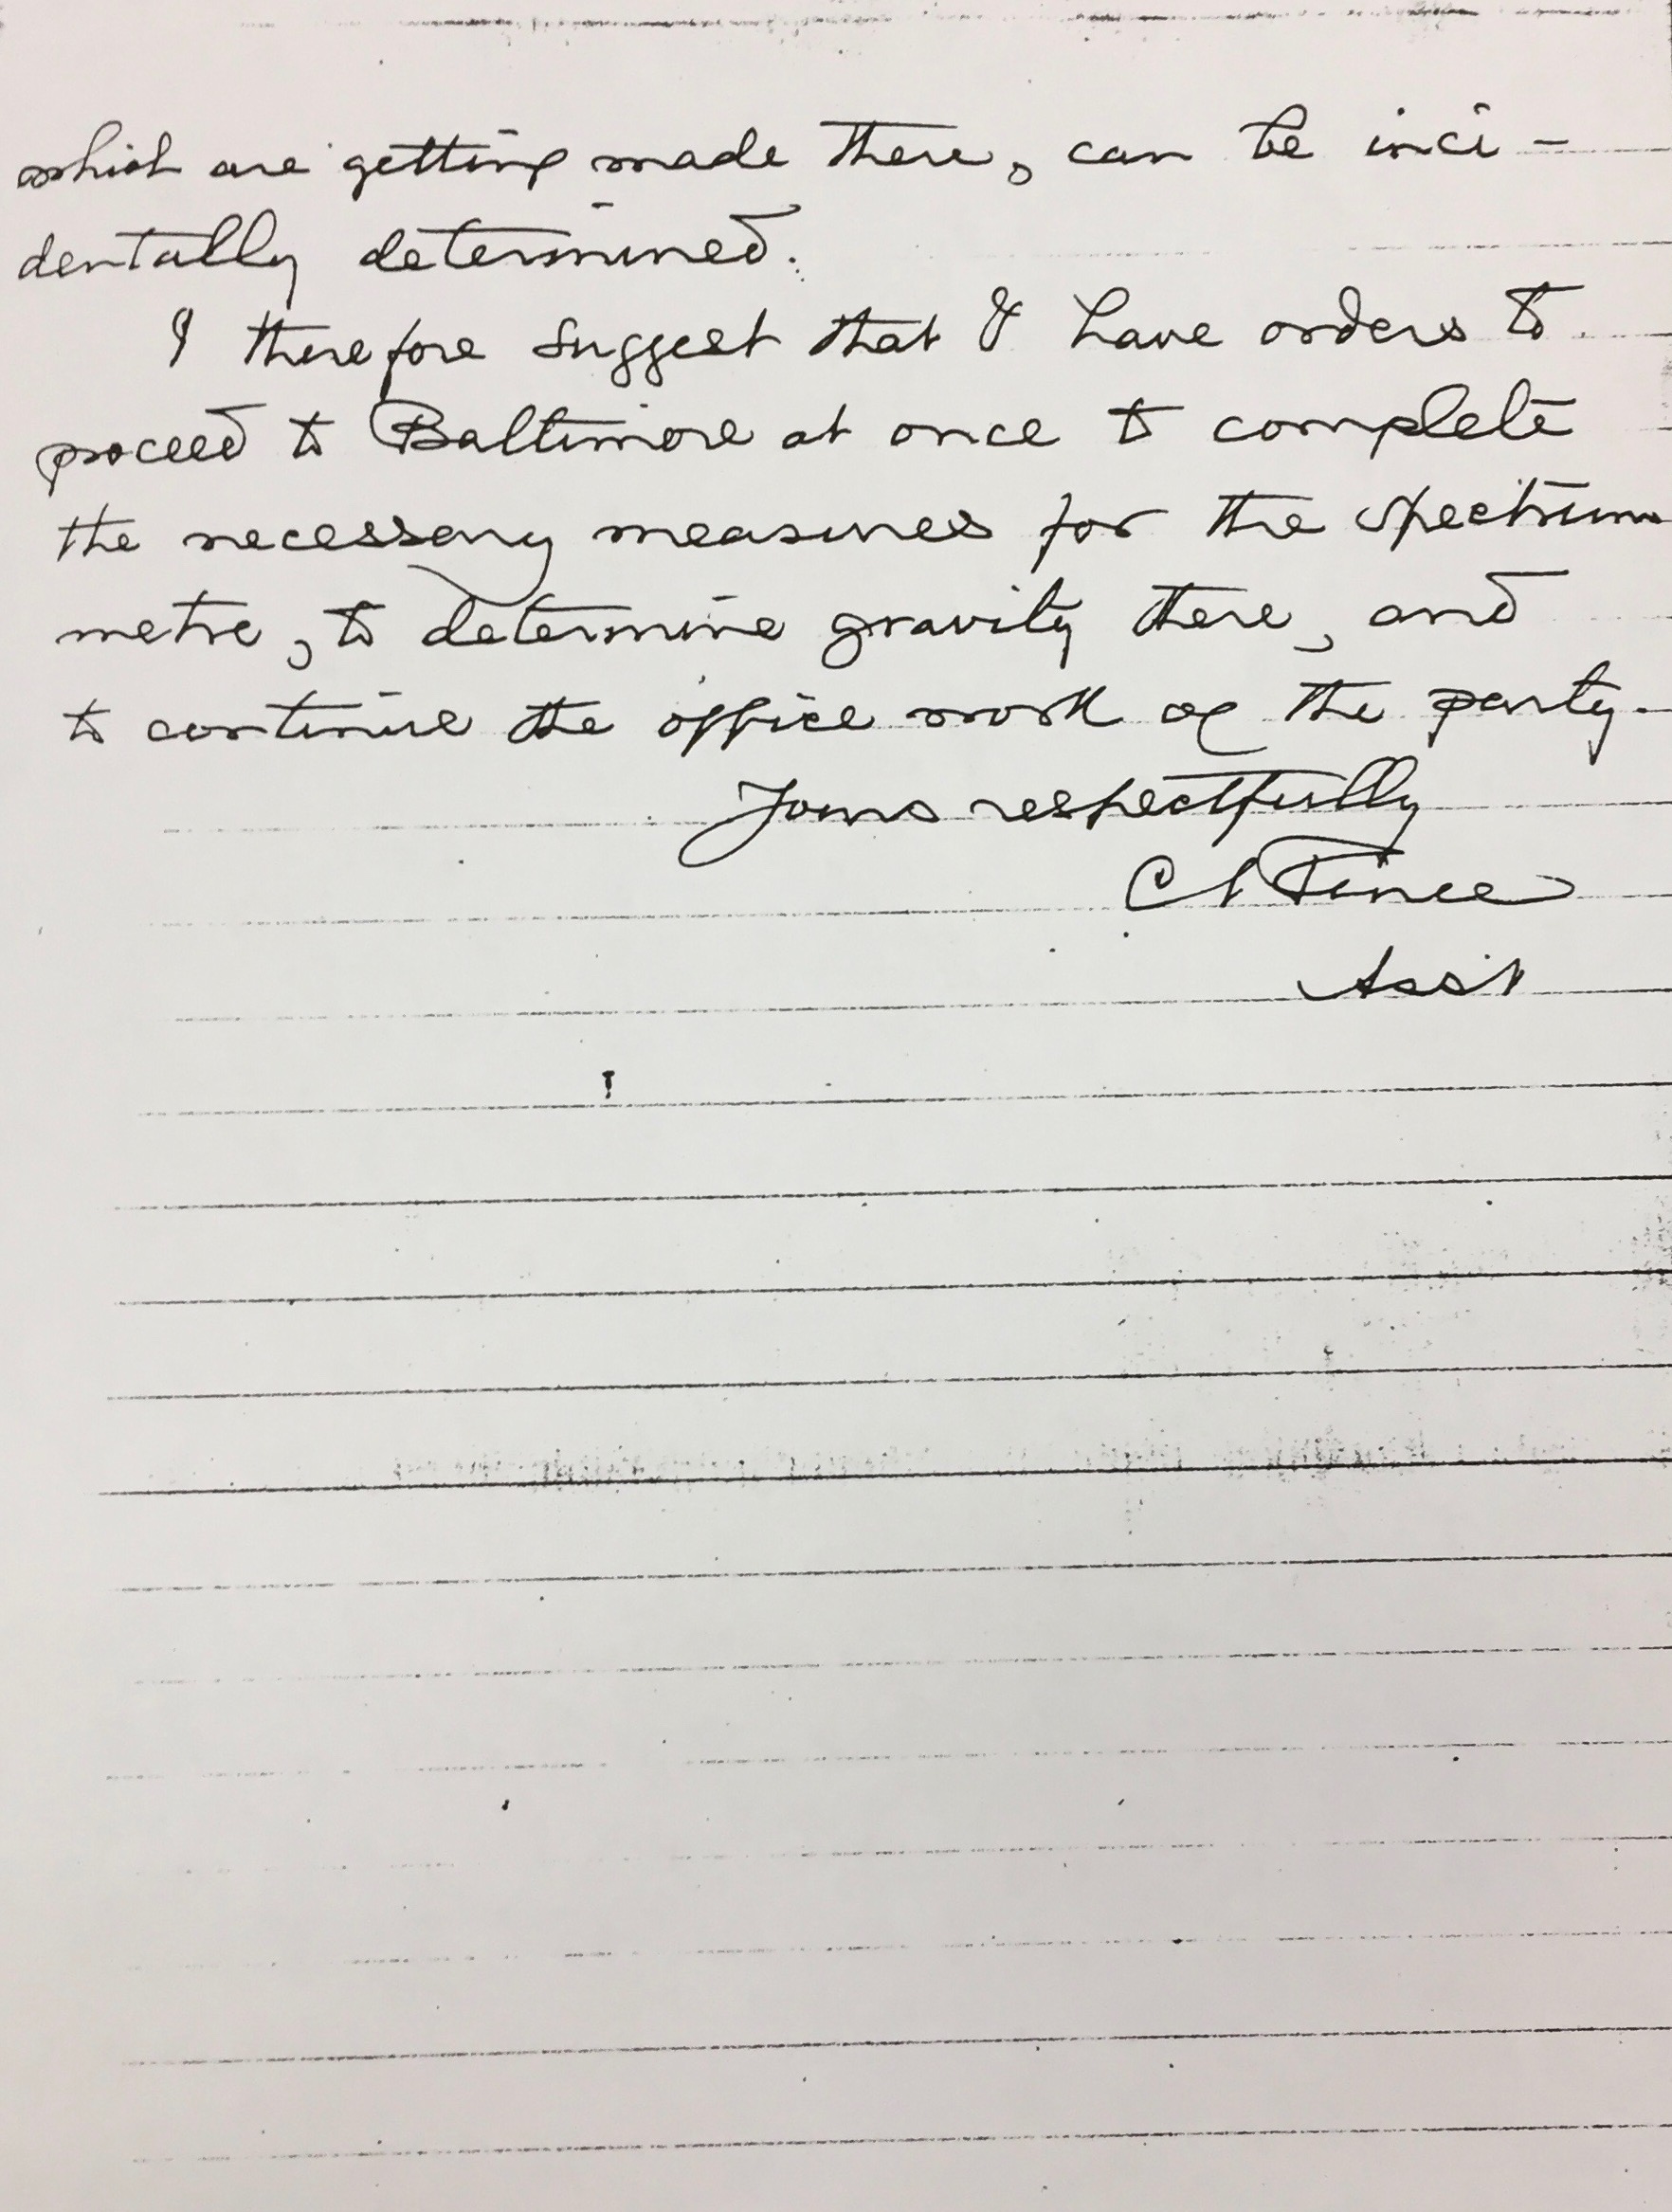 which are getting made there, can be inci-
dentally determined.
I therefore suggest that I have orders to
proceed to Baltimore at once to complete
the necessary measures for the spectrum
metre, to determine gravity there, and
to continue the office work of the party.
Yours respectfully
CS Peirce
Ass't